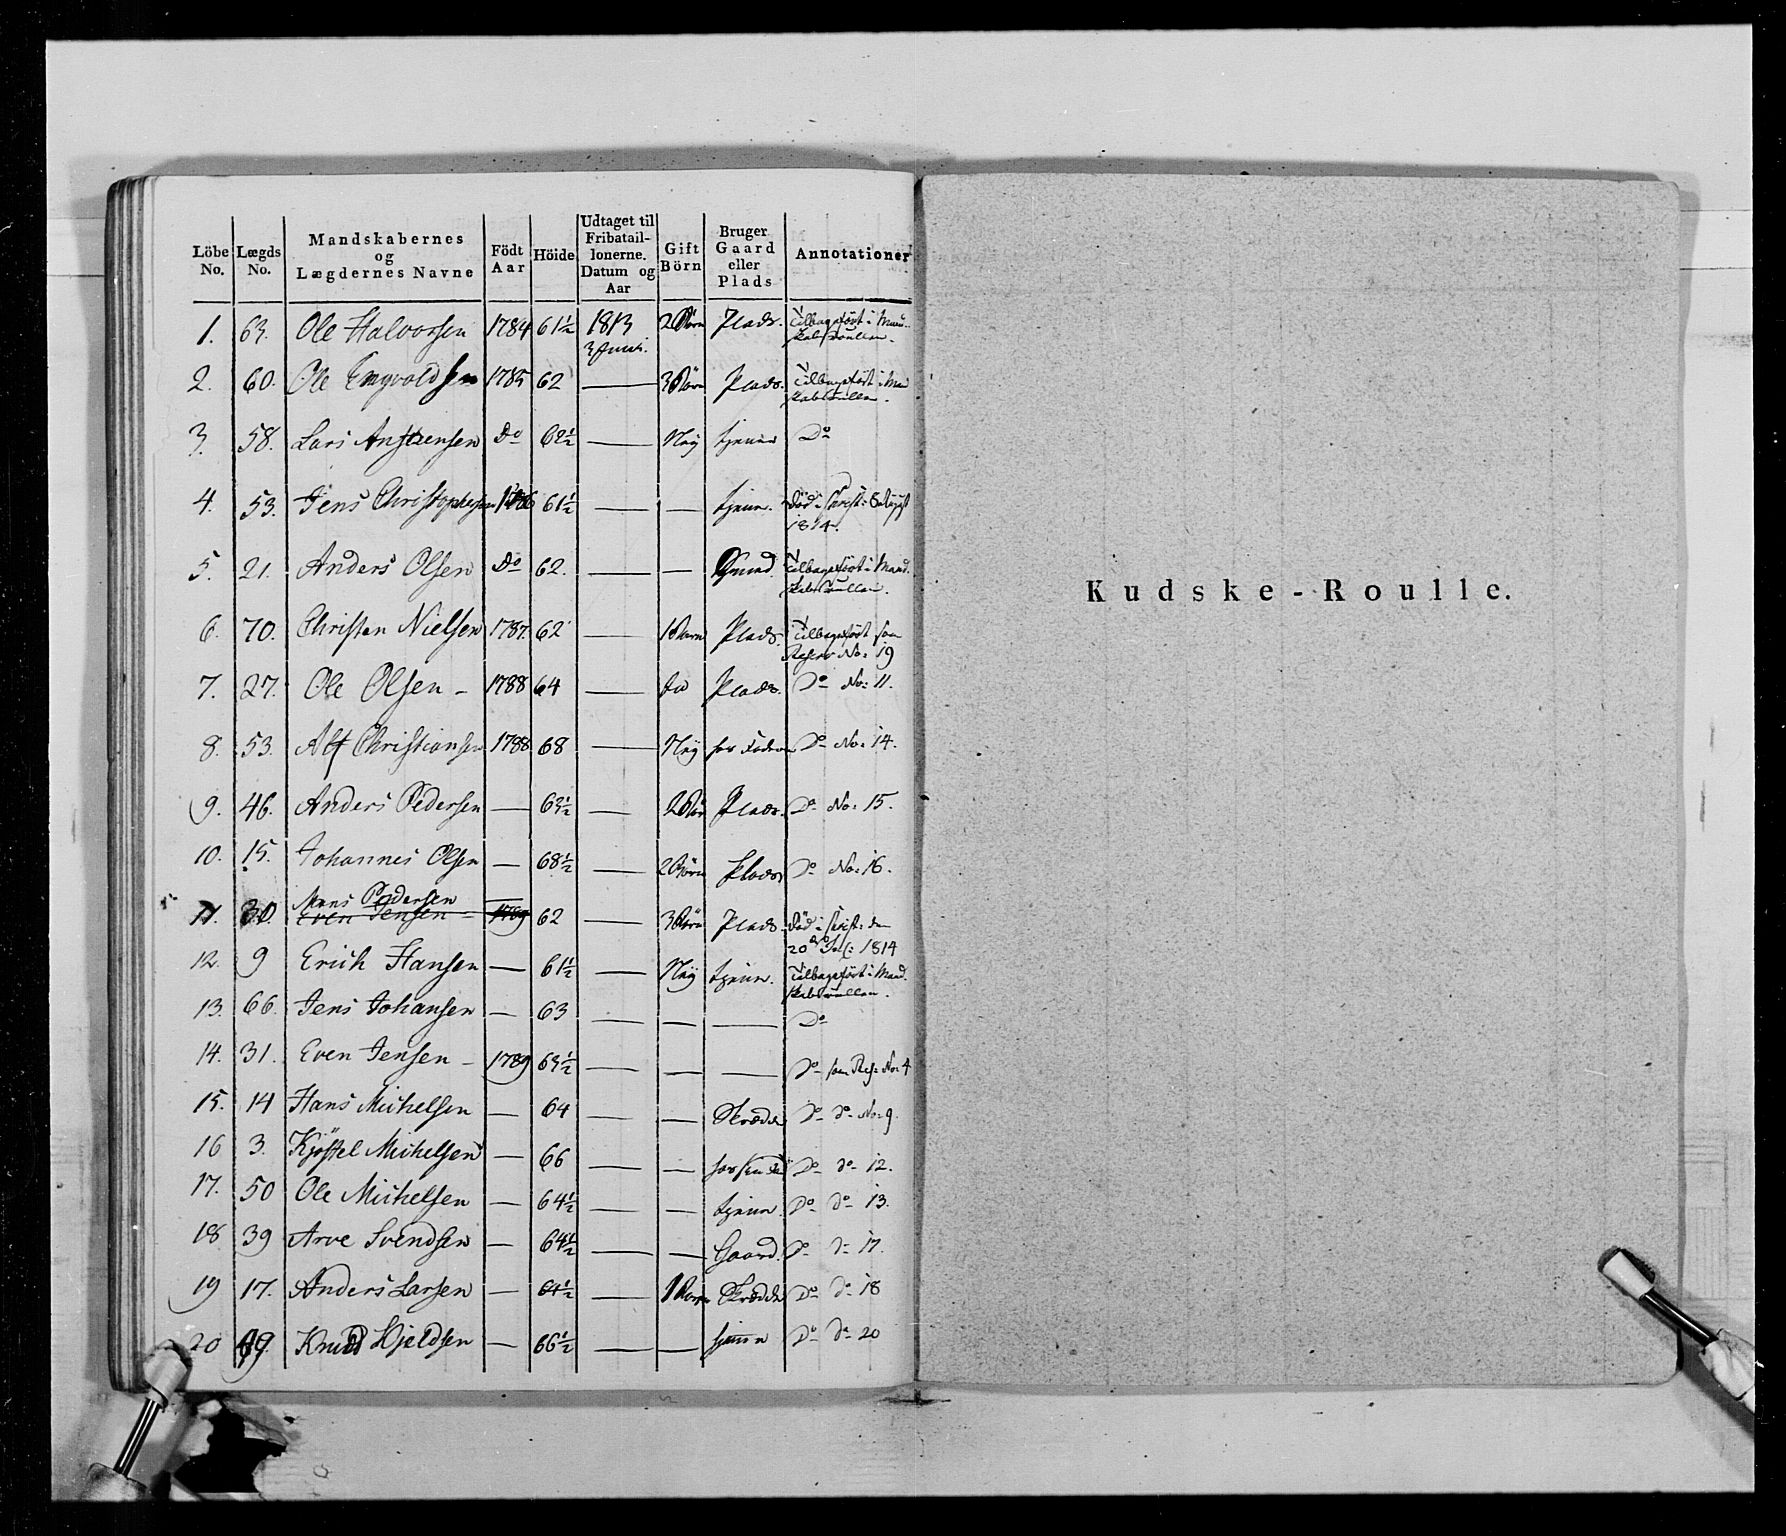 Löbe No. Lægds No. Mandskabernes og Lægdernes Navne Födt Aar Höide Udtaget til Fribataillonerne. Datum og Aar Gift Börn Bruger Gaard eller Plads Annotationer
1. 63. Ole Halvorsen 1784 61½ 1813 2 Börn Plads. Tilbageført i Mand-
3 Juni. skabsroullen.
2. 60. Ole Engvoldsen 1785 62 — 3 Börn Plads. Tilbageført i Mand
skabsroullen.
3. 58. Lars Anstensen Do 62½ — Nej tjener Do
4. 53. Jens Christophersen 1786 61½ — — tjener. Död i Christ: August
1814.
5. 21. Anders Olsen Do 62. — — Tilbageført i Mand.
skabsroullen.
6. 70. Christen Nielsen 1787. 62 — 1 Barn Plads. Tilbageført som
Reserv No: 19
7. 27. Ole Olsen – 1788 64 — Do Plads. Do No: 11.
8. 53. Alf Christiansen 1788 68 — Nej hos Do No: 14.
9. 46. Anders Pedersen — 63½ — 2 Bör Plads. Do No: 15.
10. 15. Johannes Olsen — 68½ — 2 Börn Plads Do No: 16.
Mons Pedersen
11. 30. Even Jensen 1789 62 — 3 Börn Plads. Död i Christ: den
20de 1814
12. 9 Erich Hansen — 61½ — Nej tjener. Tilbageført i Mand.
skabsroullen.
13. 66. Jens Johansen — 63 — — — Do
14. 31. Even Jensen – 1789 63½ — — — Do som Res: No: 4
15. 14 Hans Michelsen — 64 — — Skræder Do do No: 9.
16 3. Kjøstel Michelsen — 66 — — Do do 12.
17. 50 Ole Michelsen — 64½ — — tjener. Do do 13.
18 39 Arve Svendsen — 64½ — — Gaard. Do do 17.
19 17. Anders Larsen — 64½ — 1 Barn Skræder Do do 18
20 49. Knud Kjeldsen — 66½ — — tjener Do do 20
Kudske-Roulle.